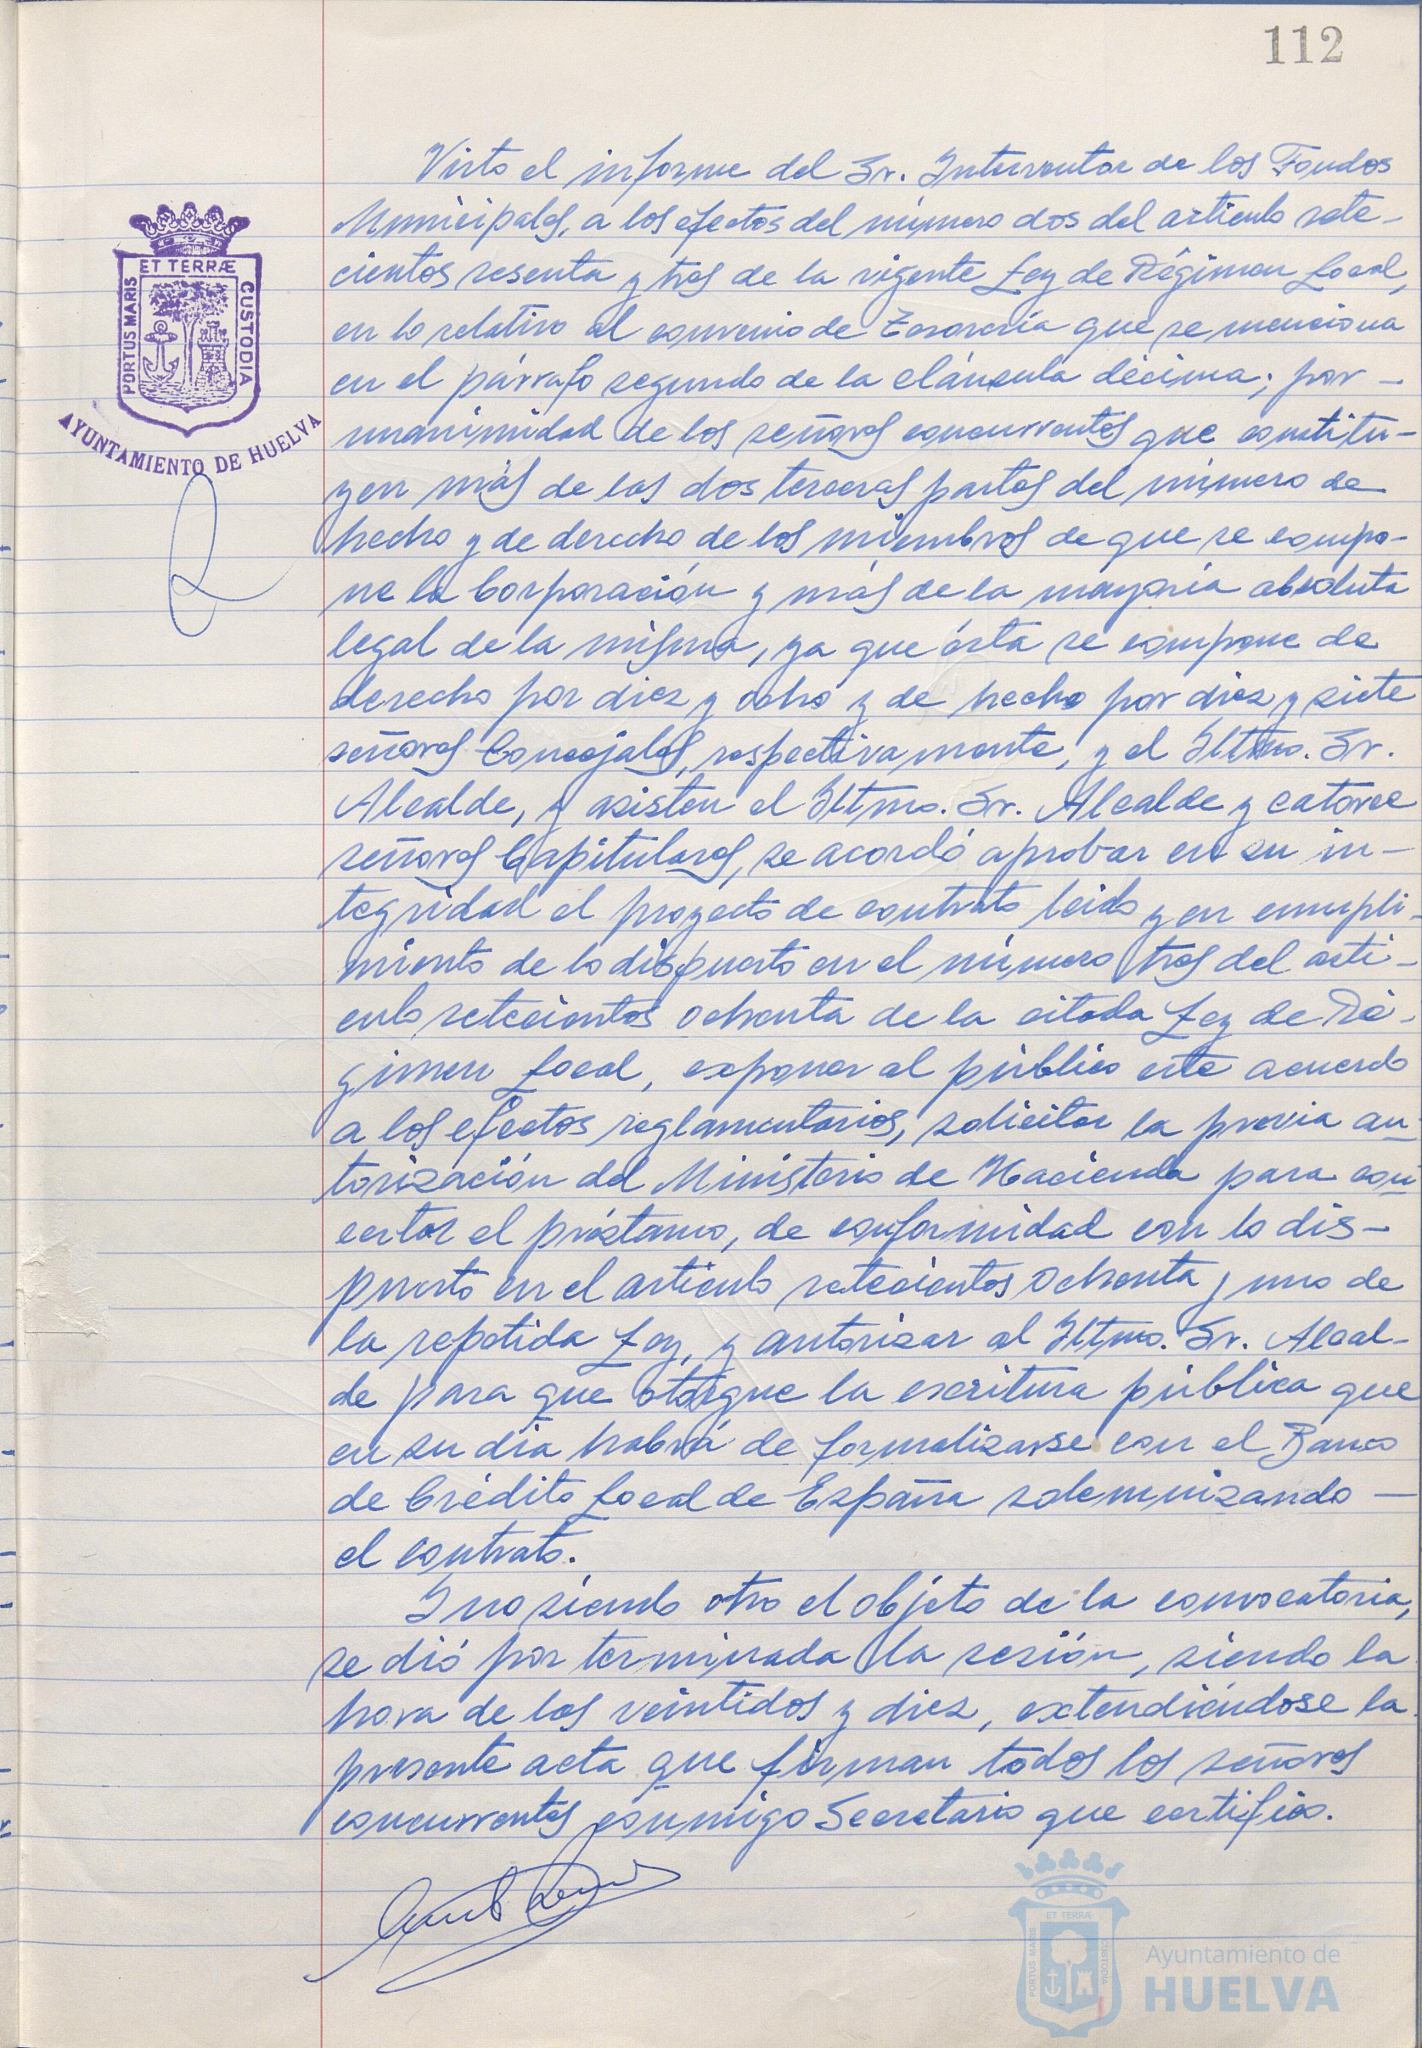 112
Visto el informe del Sr. Interventor de los Fondos
Municipales, a los efectos del número dos del articulo sete-
cientos sesenta y tres de la vigente Ley de Régimen Local,
en lo relativo al convenio de Tesorería que se menciona
en el párrafo segundo de la cláusula décima; por -
unanimidad de los señores concurrentes que constitu-
yen más de las dos terceras partes del número de
hecho y de derecho de los miembros de que se compo-
ne la Corporación y más de la mayoría absoluta
legal de la misma, ya que ésta se compone de
derecho por diez y ocho y de hecho por diez y siete
señores Concejales, respectivamente, y el Iltmo. Sr.
Alcalde, y asisten el Iltmo. Sr. Alcalde y catorce
señores Capitulares, se acordó aprobar en su in-
tegridad el proyecto de contrato leido y en cumpli-
miento de lo dispuesto en el número tres del artí-
culo setecientos ochenta de la citada Ley de Ré-
gimen Local, exponer al público este acuerdo
a los efectos reglamentarios, solicitar la previa au-
torización del Ministerio de Hacienda para con-
certar el préstamo, de conformidad con lo dis-
puesto en el artículo setecientos ochenta y uno de
la repetida Ley, y autorizar al Iltmo. Sr. Alcal-
de para que otorgue la escritura pública que
en su día habrá de formalizarse con el Banco
de Crédito Local de España solemnizando -
el contrato.
Y no siendo otro el objeto de la convocatoria,
se dió por terminada la sesión, siendo la
hora de las veintidos y diez, extendiéndose la
presente acta que firman todos los señores
concurrentes conmigo Secretario que certifico.
PORTUS MARIS
ET TERRÆ
CUSTODIA
AYUNTAMIENTO DE HUELVA
PORTUS MARIS
ET TERRÆ
CUSTODIA
Ayuntamiento de
HUELVA